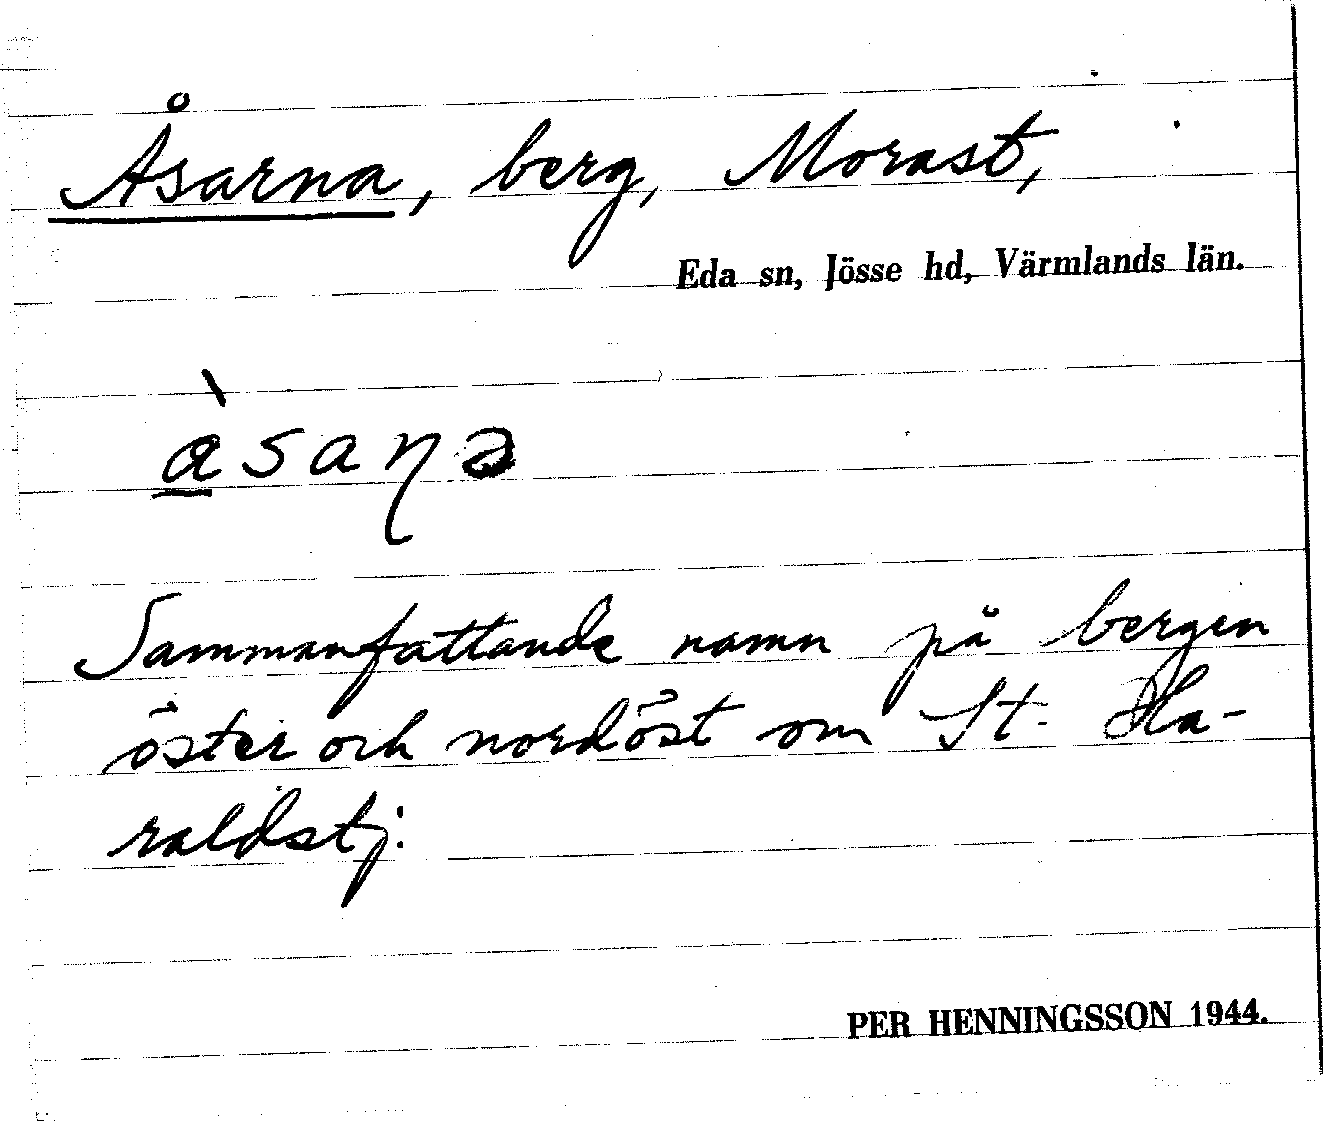 Åsarna, berg, Morast,
Eda sn, Jösse hd, Värmlands län.
à̱saɳə
Sammanfattande namn på bergen
öster och nordöst om St. Ha-
raldstj.
PER HENNINGSSON 1944.